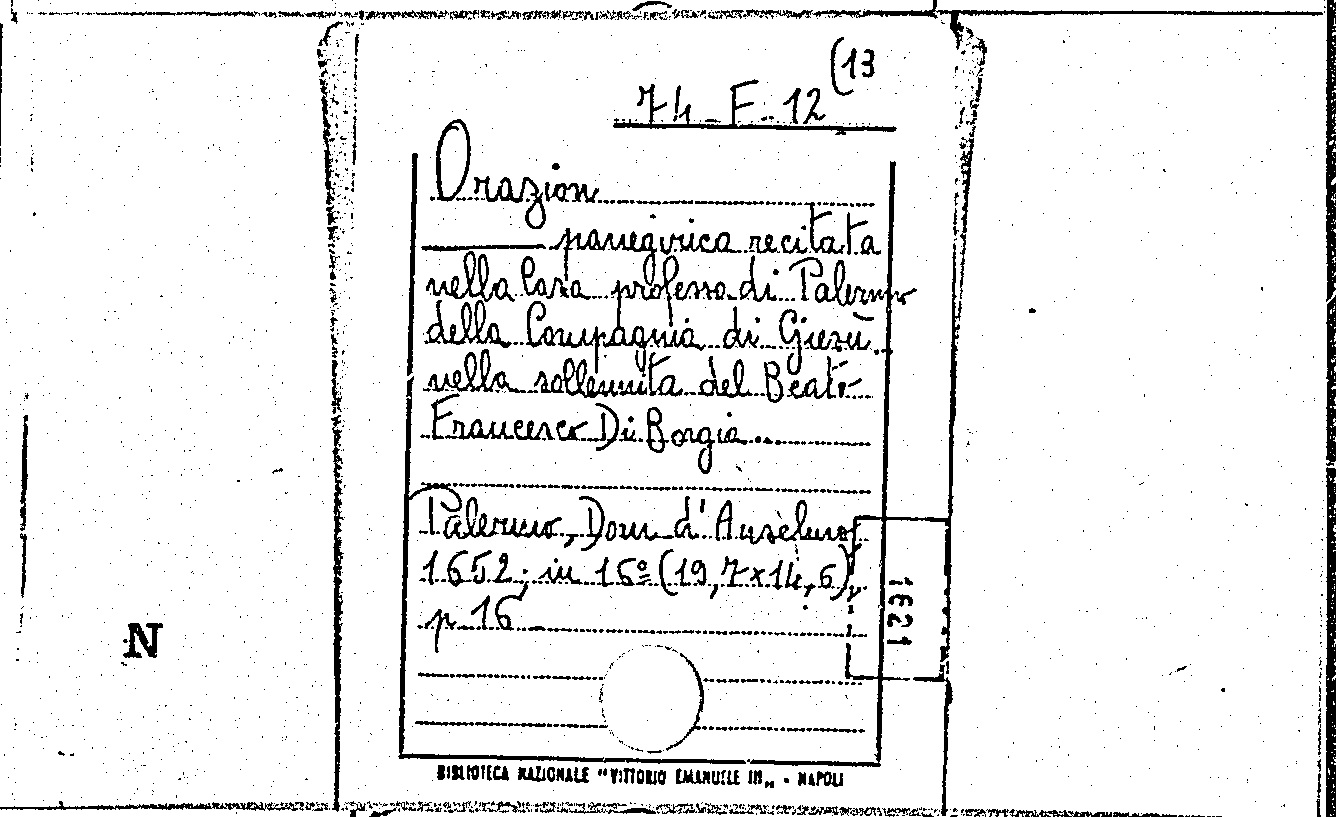 (13
74-F-12
Orazion
panegirica recitata
nella Casa professa di Palermo
della Compagnia di Giesù
nella sollennita del Beato
Francesco Di Borgia...
Palermo, Dom d'Anselmo,
1652; in 16º (19,7x14,6),
p 16
1621
N
BIBLIOTECA NAZIONALE "VITTORIO EMANUELE III" - NAPOLI